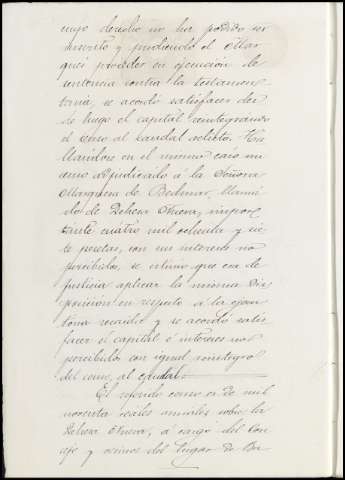 cuyo derecho no ha podido ser
inscrito y pudiendo el Mar
qués proceder en ejecución de
sentencia contra la testamen
taría, se acordó satisfacer des
de luego el capital reintegrando
el censo al caudal relicto. Ha
llándose en el mismo caso un
censo adjudicado á la Señora
Marquesa de Bedmar, llama
do de Dehesa Nueva, impor
tante cuatro mil ochenta y sie
te pesetas, con sus intereses no
percibidos, se estimó que era de
justicia aplicar la misma dis
posición en respecto á la ejecu
toria recaida y se acordó satis
facer el capital é intereses no
percibidos con igual reintegro
del censo, al caudal.
El segundo censo es de mil
noventa reales anuales sobre la
Dehesa Nueva, á cargo del Con
cejo y vecinos del lugar de